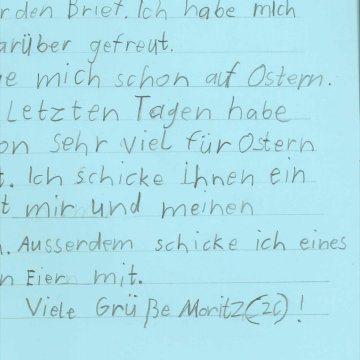 r den Brief. Ich habe mich
arüber gefreut.
e mich schon auf Ostern.
Letzten Tagen habe
on sehr viel für Ostern
t. Ich schicke ihnen ein
t mir und meinen
. Ausserdem schicke ich eines
n Eiern mit.
Viele Grüße Moritz (2c)!